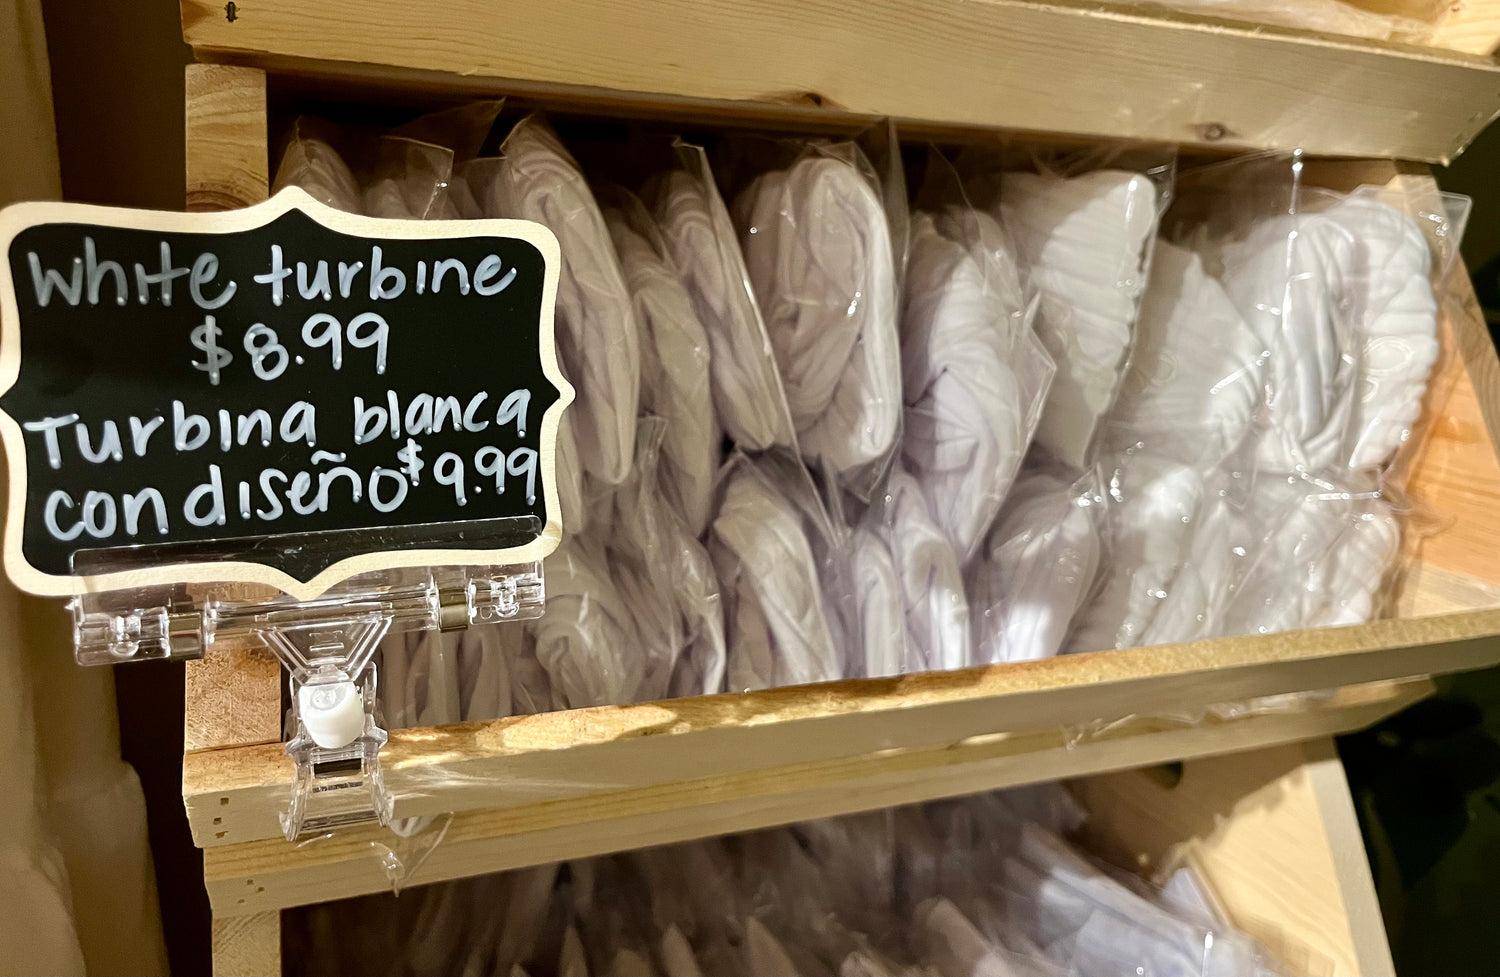 White turbine
$8.99
Turbina blanca
con diseño $9.99